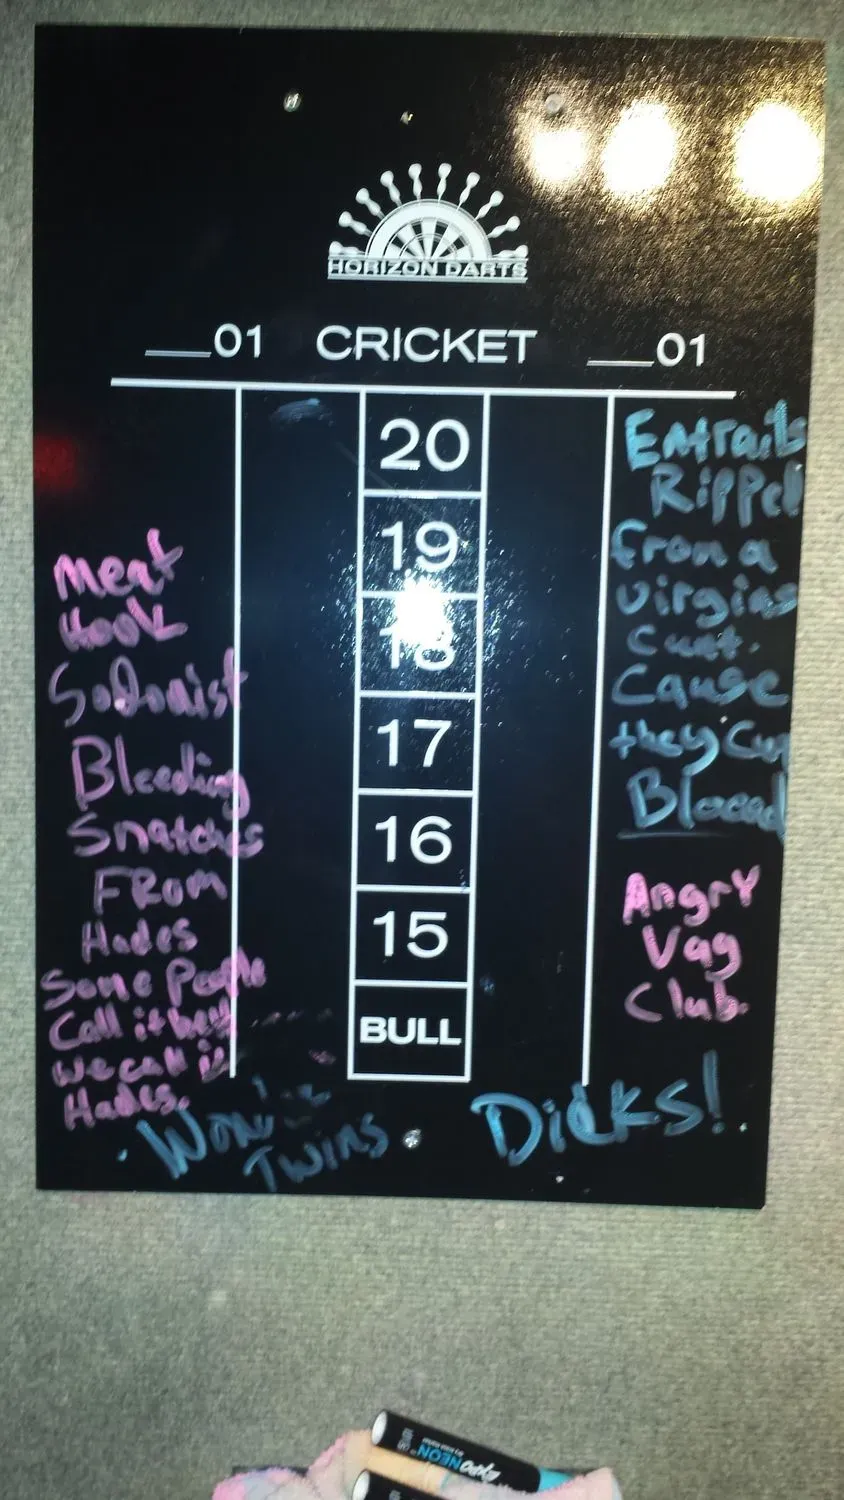 HORIZON DARTS
___01 CRICKET ___01
20
19
18
17
16
15
BULL
Meat
Hook
Sodomist
Bleeding
Snatches
FROM
Hades
Some People
Call it hell
we call it
Hades.
Entrails
Ripped
from a
virgins
cunt.
Cause
they Cum
Blood
Angry
Vag
Club.
Twins
DicKS!
EXPO NEON